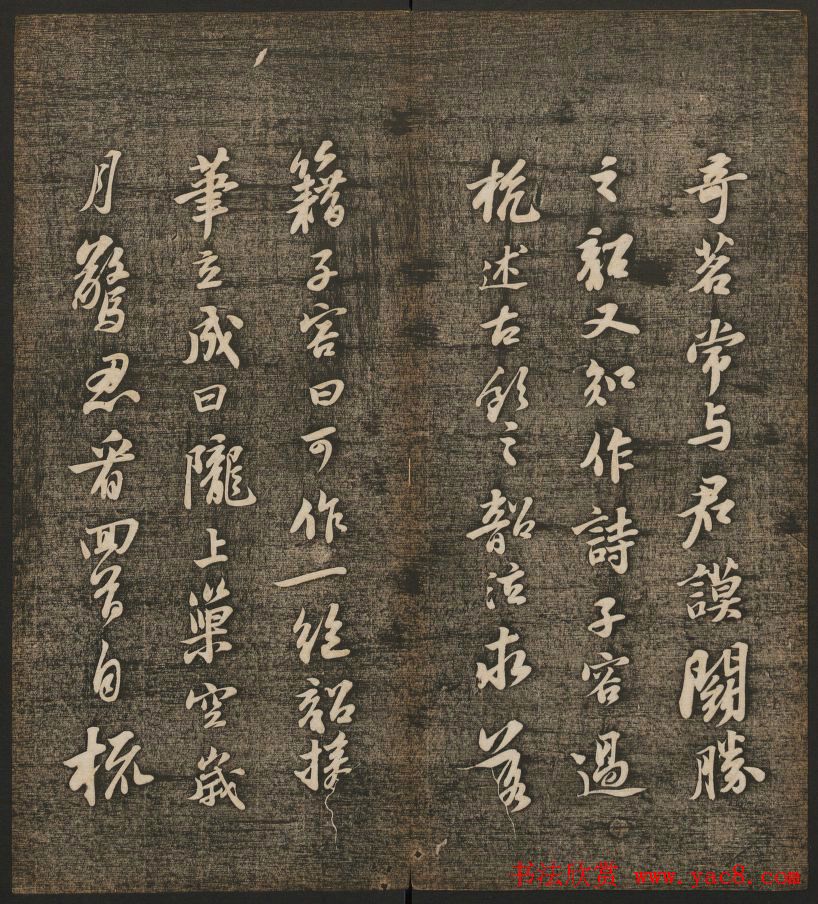 奇茗常与君謨鬪勝
之韶又知作詩子容過
杭述古飲之韶泣求落
籍子容曰可作一絶韶援
筆立成曰隴上巢空歳
月驚忍看回首自梳
书法欣赏 www.yac8.com